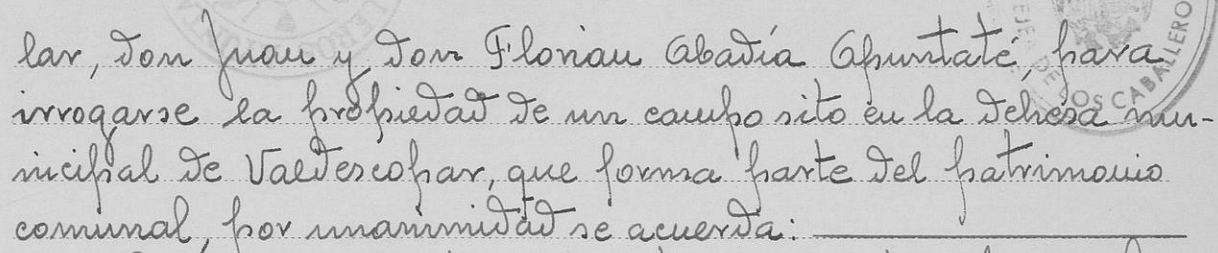 lar, don Juan y don Florian Abadía Apuntaté, para
irrogarse la propiedad de un campo sito en la dehesa mu-
nicipal de Valdescopar, que forma parte del patrimonio
comunal, por unanimidad se acuerda:
DE LOS CABALLERO